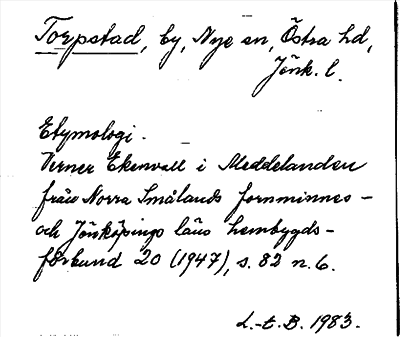 Torpstad, by, Nye sn, Östra hd,
Jönk. l.
Etymologi.
Verner Ekenvall i Meddelanden
från Norra Smålands fornminnes-
och Jönköpings läns hembygds-
förbund 20 (1947), s. 82 n. 6.
L.-E. B. 1983.